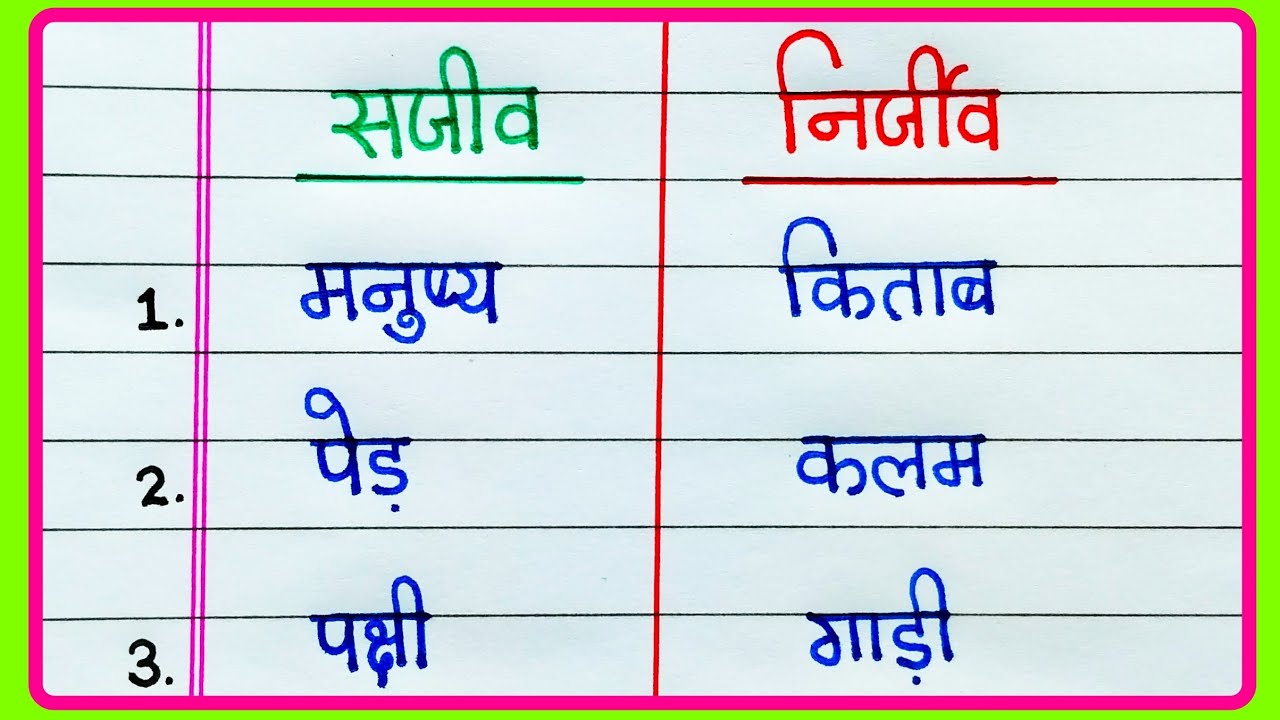 सजीव निर्जीव
1. मनुष्य किताब
2. पेड़ कलम
3. पक्षी गाड़ी